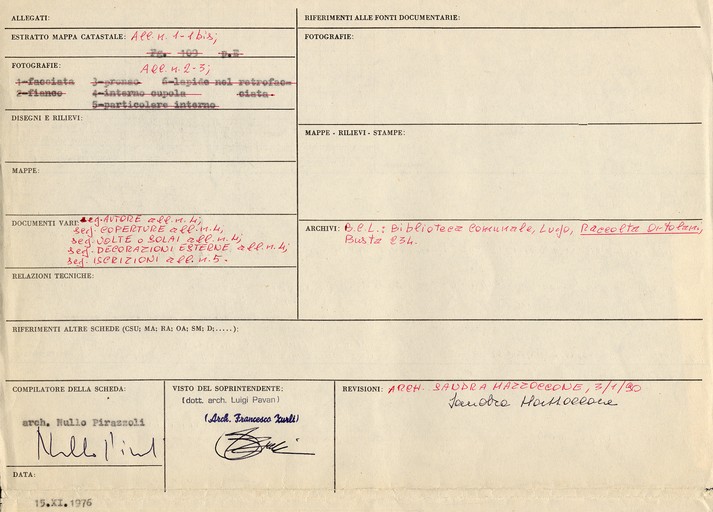 ALLEGATI:
ESTRATTO MAPPA CATASTALE: All. n. 1-1 bis;
Fg. 109 p.E
FOTOGRAFIE: All. n. 2-3;
1-facciata 3-pronao 6-lapide nel retrofac=
2-fianco 4-interno cupola ciata.
5-particolare interno
DISEGNI E RILIEVI:
MAPPE:
DOCUMENTI VARI: seg. AUTORE all. n. 4;
seg. COPERTURE all. n. 4,
seg. VOLTE o SOLAI all. n. 4;
seg. DECORAZIONI ESTERNE all. n. 4;
seg. ISCRIZIONI all. n. 5.
RELAZIONI TECNICHE:
RIFERIMENTI ALLE FONTI DOCUMENTARIE:
FOTOGRAFIE:
MAPPE - RILIEVI - STAMPE:
ARCHIVI: B.C.L.: Biblioteca Comunale, Lugo, Raccolta Ortolani,
Busta 234.
RIFERIMENTI ALTRE SCHEDE (CSU; MA; RA; OA; SM; D;.....):
COMPILATORE DELLA SCHEDA:
arch. Nullo Pirazzoli
DATA:
15.XI.1976
VISTO DEL SOPRINTENDENTE:
(dott. arch. Luigi Pavan)
(Arch. Francesco Zurli)
REVISIONI: ARCH. SANDRA MAZZOCCONE, 3/1/90
Sandra Mazzoccone